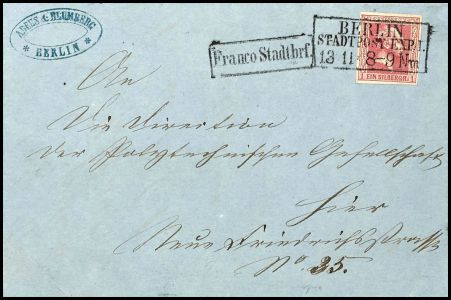 & BLUMBERG
* BERLIN *
Franco Stadtbrf.
BERLIN
STADTPOST-EXP. I.
13 11 8-9 Nm
EIN SILBERGR.
An
Die Direction
der Polytechnischen Gesellschaft
Hier
Neue Friedrichsstrasse
No. 35.